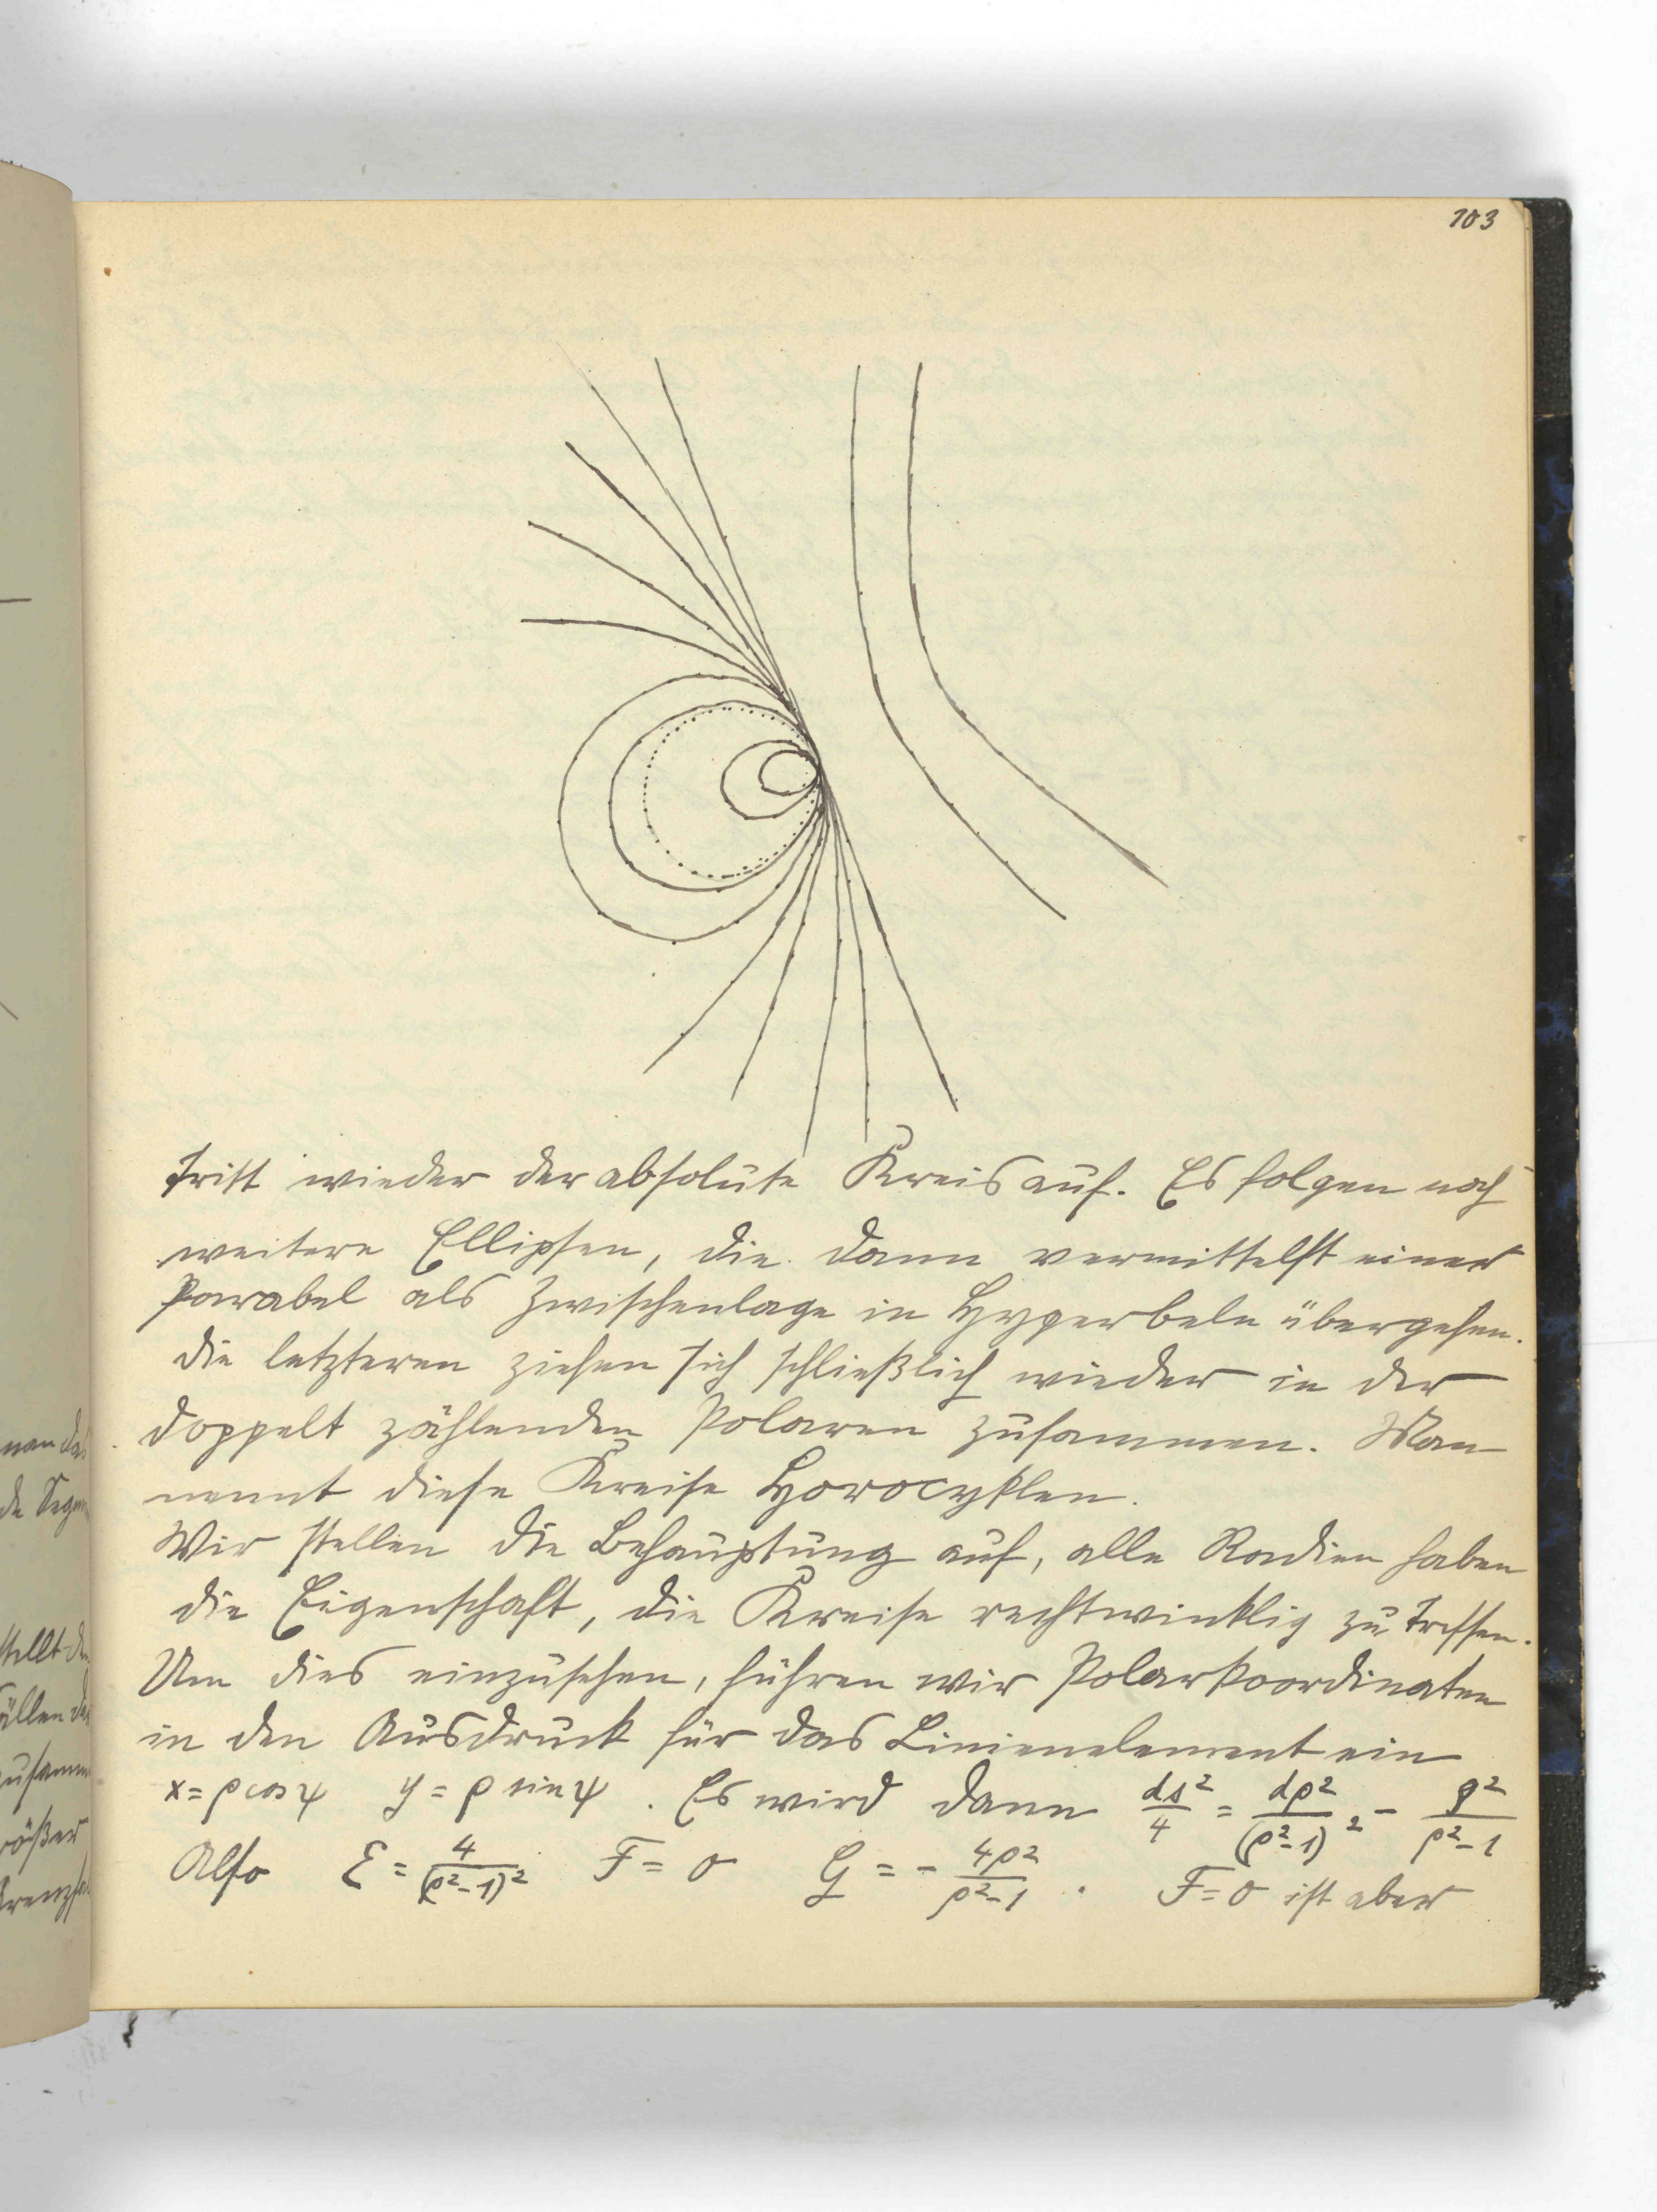 103
tritt wieder der absolute Kreis auf. Es folgen noch
weitere Ellipsen, die dann vermittelst einer
Parabel als Zwischenlage in Hyperbeln übergehen.
Die letzteren ziehen sich schließlich wieder in der
doppelt zählenden Polaren zusammen. Man
nennt diese Kreise Horocyklen.
Wir stellen die Behauptung auf, alle Radien haben
die Eigenschaft, die Kreise rechtwinklig zu treffen.
Um dies einzusehen, führen wir Polarkoordinaten
in den Ausdruck für das Linienelement ein
x = ρ cos ψ y = ρ sin ψ. Es wird dann ds²/4 = dρ²/(ρ²-1)² - ρ²/ρ²-1
Also E = 4/(ρ²-1)² F = 0 G = - 4ρ²/ρ²-1. F = 0 ist aber
man das
de
stellt
ällen
zusamm
größer